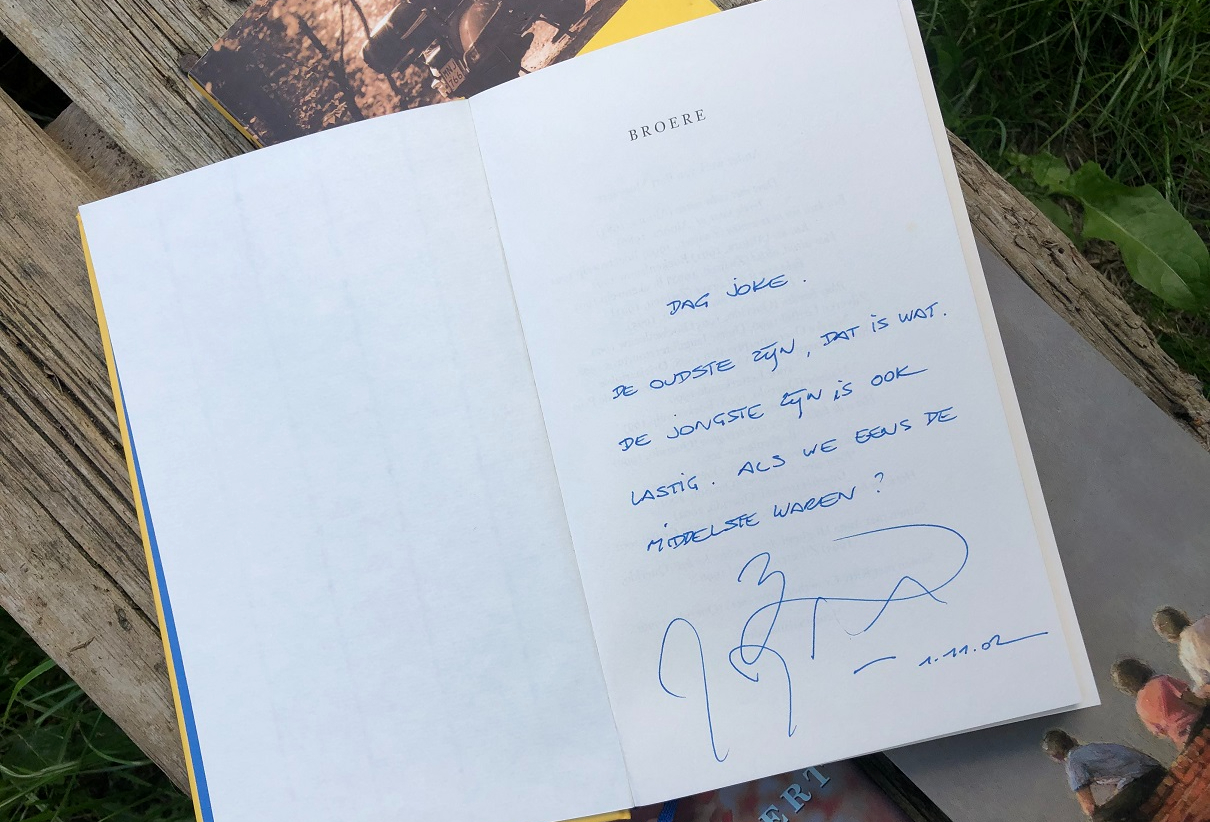 BROERE
DAG JOKE.
DE OUDSTE ZIJN, DAT IS WAT.
DE JONGSTE ZIJN IS OOK
LASTIG. ALS WE EENS DE
MIDDELSTE WAREN?
1.11.02
ERT